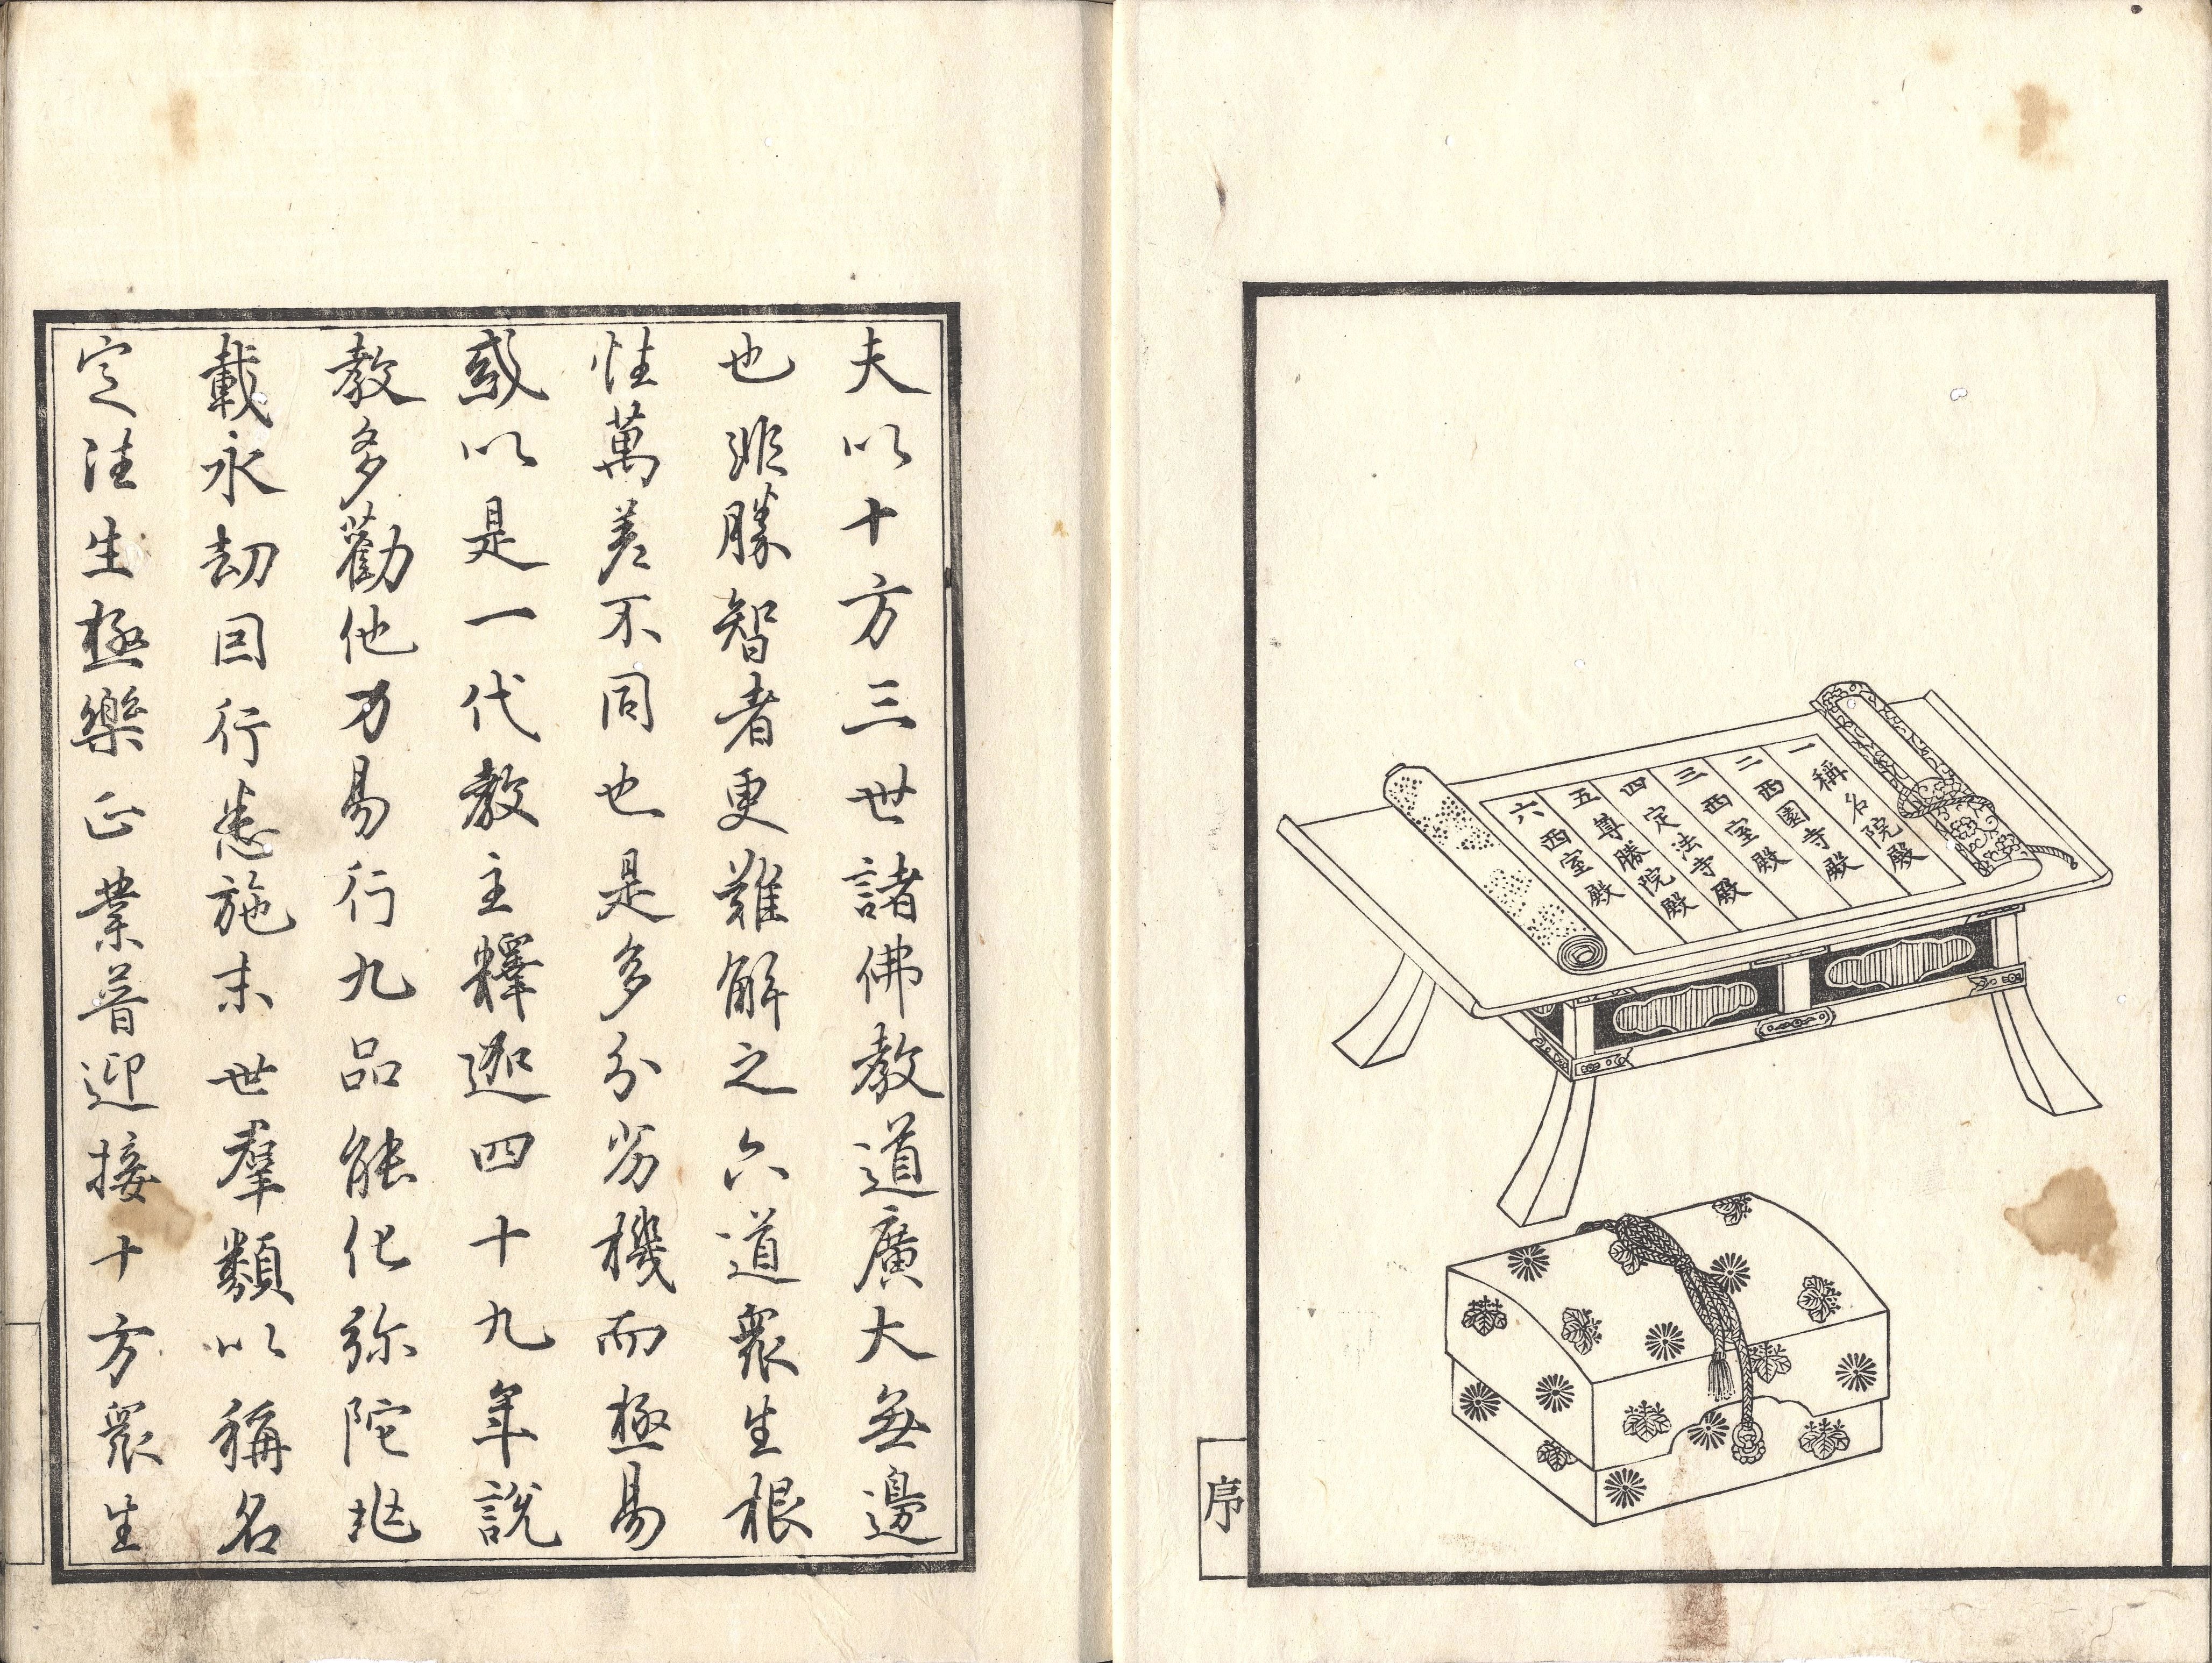 一稱名院殿
二西園寺殿
三西室殿
四定法寺殿
五尊勝院殿
六西室殿
序
夫以十方三世諸佛教道廣大無邊
也非勝智者更難解之六道衆生根
性萬差不同也是多分劣機而極易
惑以是一代教主釋迦四十九年說
教多勸他力易行九品能化弥陀兆
載永劫因行悉施末世羣類以稱名
定往生極樂正業普迎接十方衆生